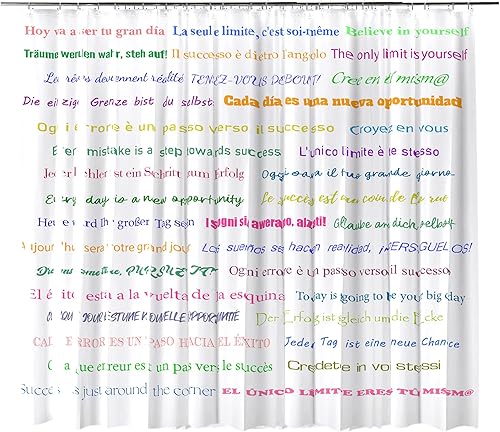 Hoy va a ser tu gran día La seule limite, c'est soi-même Believe in yourself
Träume werden wahr, steh auf! Il successo è dietro l'angolo The only limit is yourself
Les rêves deviennent réalité TENEZ-VOUS DEBOUT! Cree en ti mism@
Die einzige Grenze bist du selbst Cada día es una nueva oportunidad
Ogni errore è un passo verso il successo Croyez en vous
Every mistake is a step towards success L'unico limite è te stesso
Jeder Fehler ist ein Schritt zum Erfolg Oggi sarà il tuo grande giorno
Every day is a new opportunity Le succès est au coin de la rue
Heute wird Ihr großer Tag sein I sogni si avverano, alzati! Glaube an dich selbst
Aujourd'hui sera votre grand jour Los sueños se hacen realidad, ¡PERSÍGUELOS!
Dreams come true, PURSUE IT Ogni errore è un passo verso il successo
El éxito está a la vuelta de la esquina Today is going to be your big day
CHAQUE JOUR EST UNE NOUVELLE OPPORTUNITÉ Der Erfolg ist gleich um die Ecke
CADA ERROR ES UN PASO HACIA EL ÉXITO Jeder Tag ist eine neue Chance
Chaque erreur est un pas vers le succès Credete in voi stessi
Success is just around the corner EL ÚNICO LÍMITE ERES TÚ MISM@